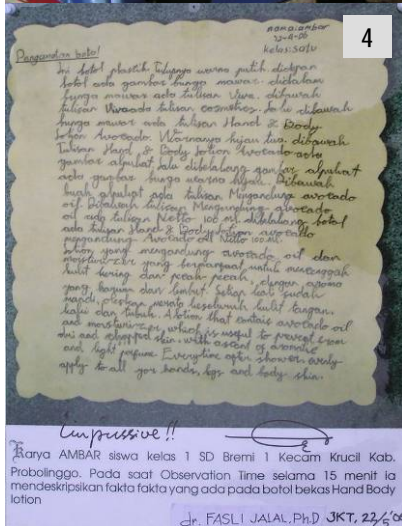 nama: ambar
kelas: satu
4
Pengandra botol
Ini botol plastik tutupnya warna putih didepan
botol ada gambar bunga mawar. didalam
bunga mawar ada tulisan Viva. dibawah
tulisan Viva ada tulisan cosmetics. Lalu dibawah
bunga mawar ada tulisan Hand & Body
lotion Avocado. Warnanya hijau tua. dibawah
Tulisan Hand & Body Lotion Avocado ada
gambar alpukat lalu dibelakang gambar alpukat
ada gambar bunga warna hijau. Dibawah
buah alpukat ada tulisan Mengandung avocado
oil. Dibawah tulisan Mengandung avocado
oil ada tulisan Netto 100 ml. dibelakang botol
ada tulisan Hand & Body Lotion avocado
mengandung Avocado oil Netto 100 ml.
lotion yang mengandung avocado oil dan
moisturizer yang untuk mencegah
kulit kering dan pecah-pecah, dengan aroma
yang dan lembut. Setiap kali sudah
mandi, oleskan merata keseluruh kulit tangan,
kaki dan tubuh. A lotion that contais avocado oil
and moisturizer, which is useful to prevent from
dri and chapped skin, with ascent of aromatic
and light perfume. Everytime after shower, evenly
apply to all your hands, legs and body skin.
Impressive!!
Karya AMBAR siswa kelas 1 SD Bremi 1 Kecam Krucil Kab.
Probolinggo. Pada saat Observation Time selama 15 menit ia
mendeskripsikan fakta fakta yang ada pada botol bekas Hand Body
lotion
dr. FASLI JALAL, PhD JKT, 22/5'